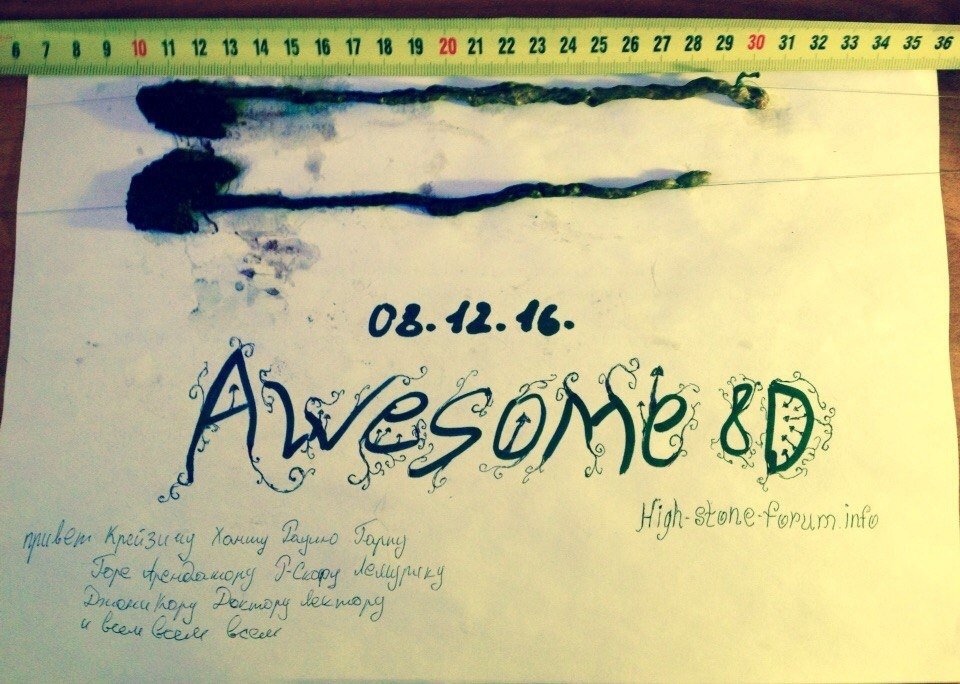 6 7 8 9 10 11 12 13 14 15 16 17 18 19 20 21 22 23 24 25 26 27 28 29 30 31 32 33 34 35 36
08.12.16.
Awesome 8D
High-stone-forum.info
привет Крейзину Ханшу Раулю Гарпу
Горе Р-Скару Лемурику
Джони Кору Доктору Лектору
и всем всем всем